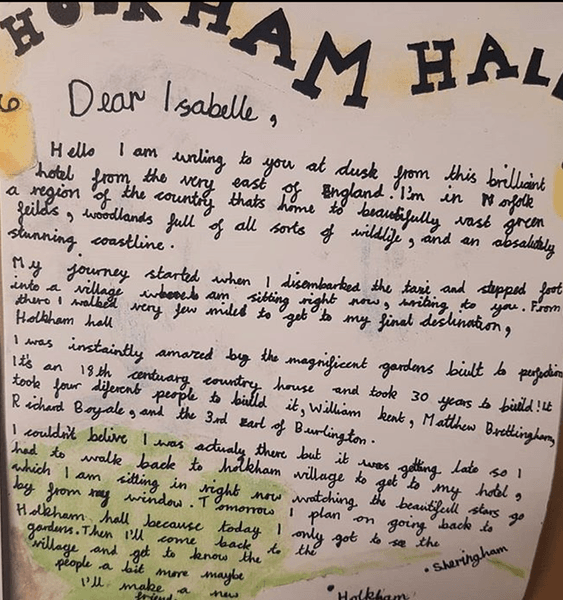 HOLKHAM HALL
Dear Isabelle,
Hello I am writing to you at dusk from this brilliant
hotel from the very east of England. I'm in Norfolk
a region of the country thats home to beautifully vast green
feilds, woodlands full of all sorts of wildlife, and an absolutely
stunning coastline.
My journey started when I disembarked the taxi and stepped foot
into a village where am sitting right now, writing to you. From
there I walked very few miles to get to my final destination,
Holkham hall
I was instaintly amazed by the magnificent gardens built to perfection
It's an 18th centuary country house and took 30 years to build! It
took four diferent people to build it, William kent, Matthew Brettingham,
Richard Boyale, and the 3rd Earl of Burlington.
I couldn't belive I was actualy there but it was getting late so I
had to walk back to holkham village to get to my hotel,
which I am sitting in right now watching the beautifull stars go
by from my window. Tomorrow I plan on going back to
Holkham hall because today I only got to see the
gardens. Then I'll come back to the
village and get to know the
people a bit more maybe
I'll make a new
friend
• Sheringham
• Holkham